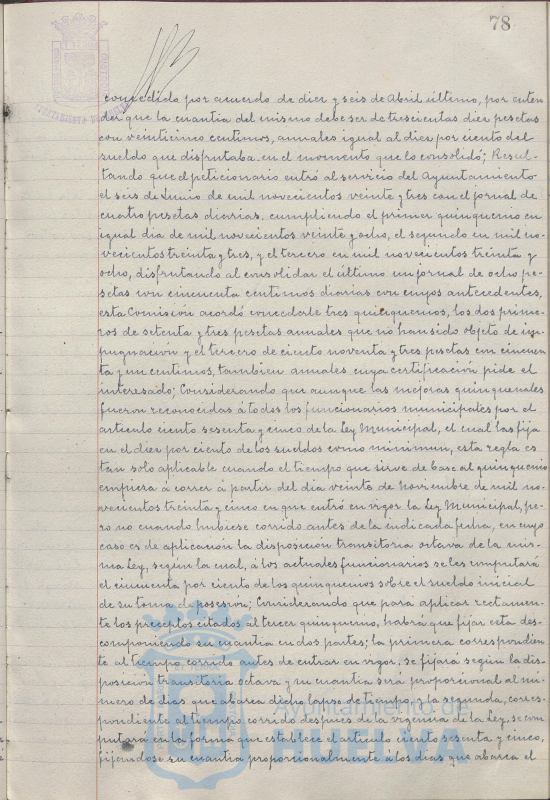 78
concedido por acuerdo de diez y seis de Abril último, por enten
der que la cuantia del mismo debe ser de trescientas diez pesetas
con veinticinco centimos, annales igual al diez por ciento del
sueldo que disfrutaba en el momento que lo consolidó; Resul-
tando que el peticionario entró al servicio del Ayuntamiento
el seis de Junio de mil novecientos veinte y tres con el jornal de
cuatro pesetas diarias, cumpliendo el primer quinquenio en
igual dia de mil novecientos veinte y ocho, el segundo en mil no-
vecientos treinta y tres, y el tercero en mil novecientos treinta y
ocho, disfrutando al consolidar el último un jornal de ocho pe-
setas con cincuenta centimos diarias con cuyos antecedentes,
esta Comisión acordó concederle tres quinquenios, los dos prime-
ros de setenta y tres pesetas annales que no han sido objeto de im-
pugnacion y el tercero de ciento noventa y tres pesetas con cincuen
ta y un centimos, tambien annales cuya certificación pide el
interesado; Considerando que aunque las mejoras quinquenales
fueron reconocidas á todos los funcionarios municipales por el
articulo ciento sesenta y cinco de la Ley Municipal, el cual las fija
en el diez por ciento de los sueldos como minimun, esta regla es
tan solo aplicable cuando el tiempo que sirve de base al quinquenio
empieza á correr á partir del dia veinte de Noviembre de mil no-
vecientos treinta y cinco en que entró en vigor la Ley Municipal, pe-
ro no cuando hubiese corrido antes de la indicada fecha, en cuyo
caso es de aplicacion la disposición transitoria octava de la mis-
ma Ley, según la cual, á los actuales funcionarios se les computará
el cincuenta por ciento de los quinquenios sobre el sueldo inicial
de su toma de posesion; Considerando que para aplicar rectamen-
te los preceptos citados al tercer quinquenio, habrá que fijar esta des-
componiendo su cuantia en dos partes; la primera correspondien
te al tiempo corrido antes de entrar en vigor, se fijará según la dis-
posición transitoria octava y su cuantia será proporcional al nú-
mero de dias que abarca dicho lapso de tiempo y la segunda, corres-
pondiente al tiempo corrido despues de la vigencia de la Ley, se com
putará en la forma que establece el articulo ciento sesenta y cinco,
fijandose su cuantia proporcionalmente á los dias que abarca el
Ayuntamiento de
HUELVA